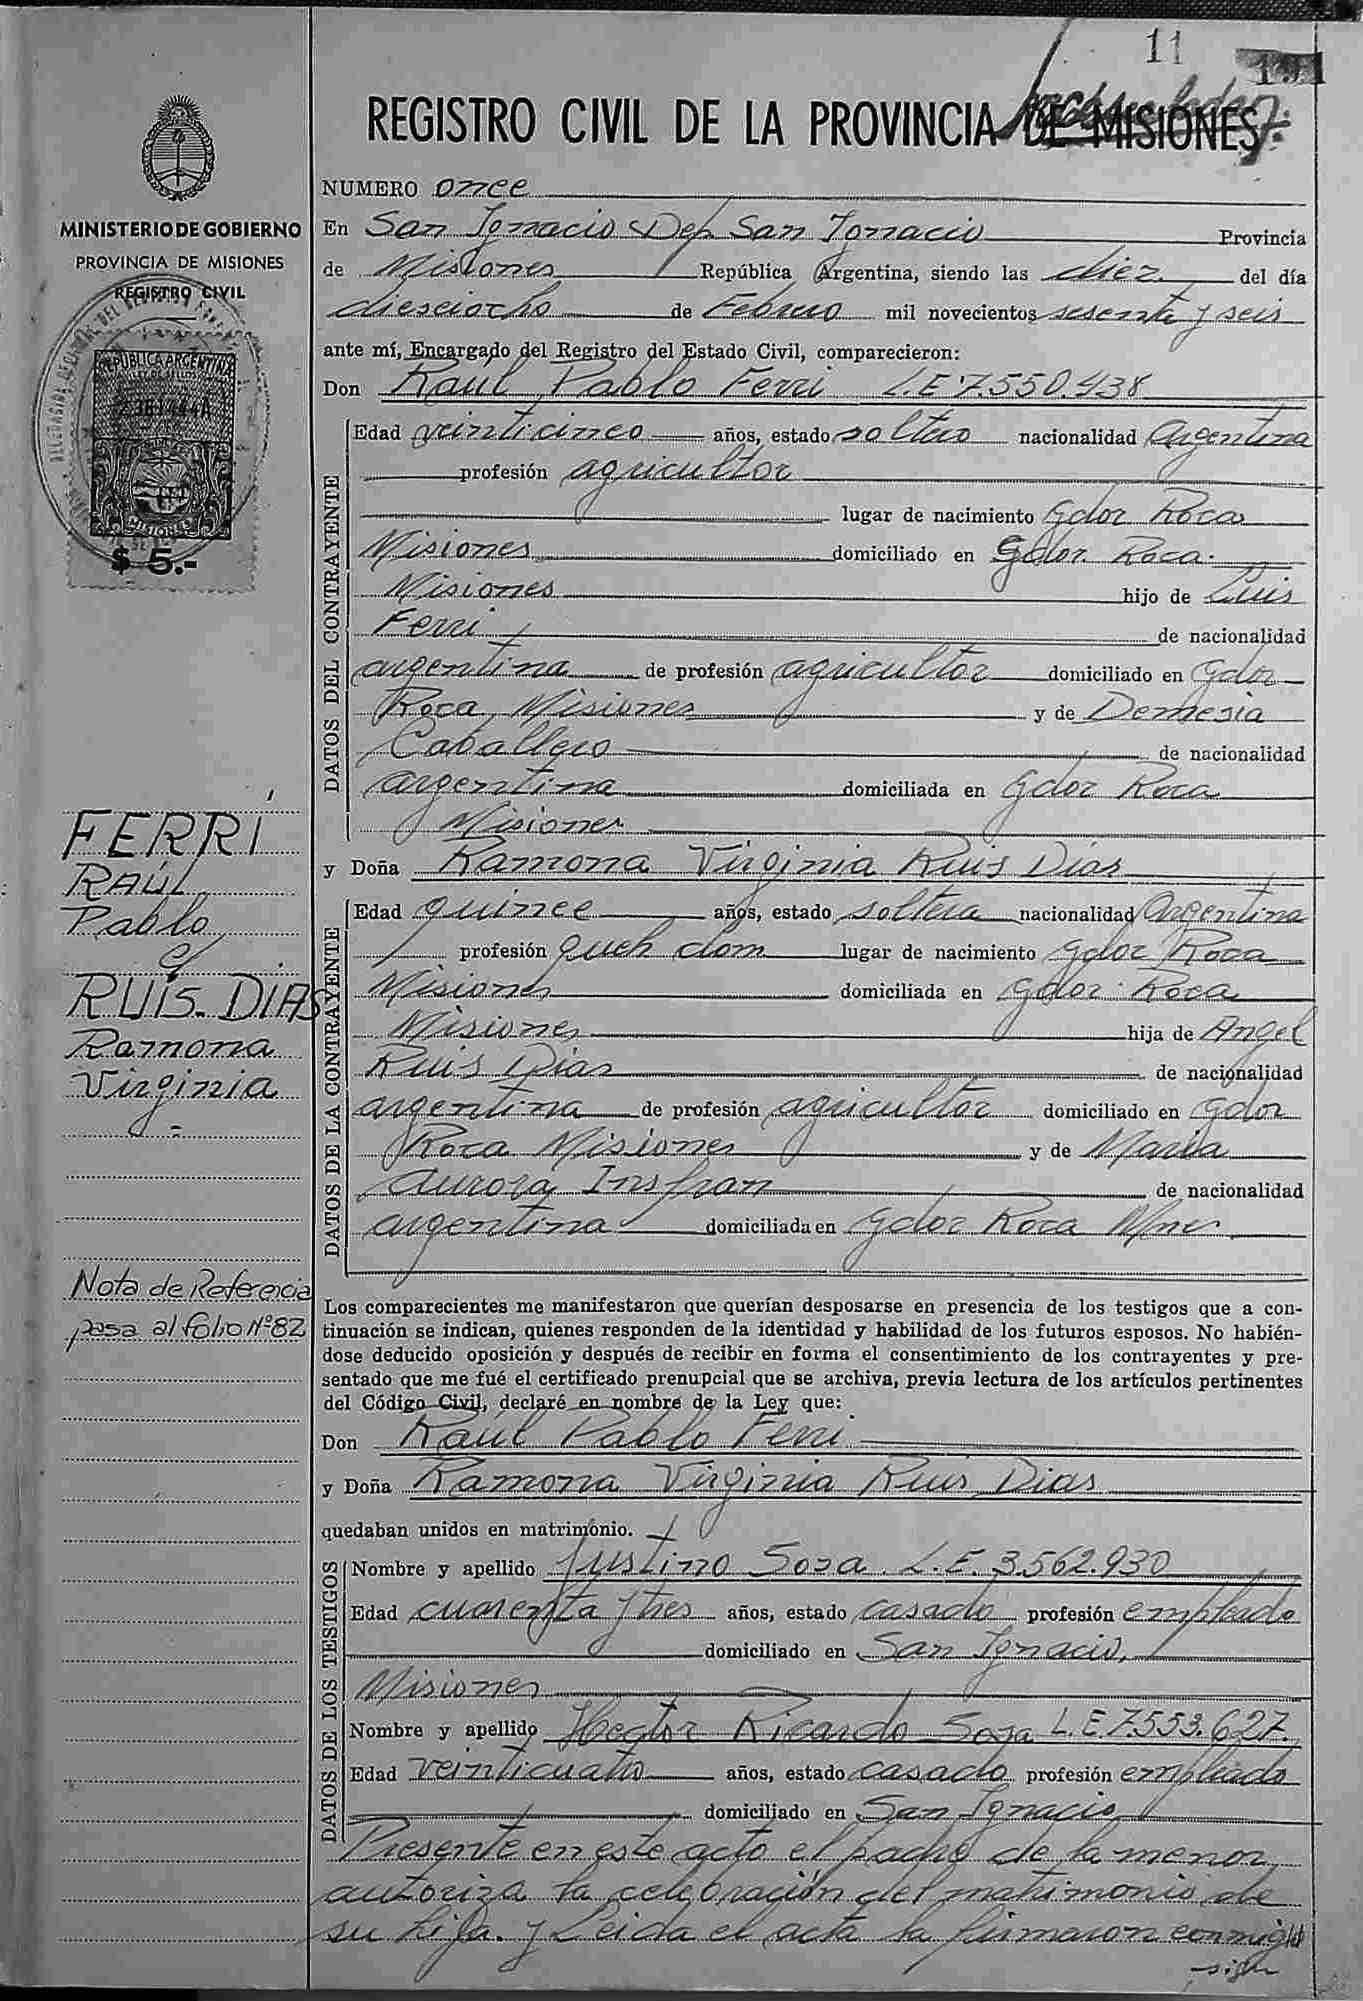 11
REGISTRO CIVIL DE LA PROVINCIA DE MISIONES
MINISTERIO DE GOBIERNO
PROVINCIA DE MISIONES
REGISTRO CIVIL
REPUBLICA ARGENTINA
MISIONES
$ 5.-
NUMERO once
En San Ignacio Dep. San Ignacio Provincia
de Misiones República Argentina, siendo las diez del día
diesciocho de Febrero mil novecientos sesenta y seis
ante mí, Encargado del Registro del Estado Civil, comparecieron:
Don Raúl Pablo Ferri L.E 7.550.438
DATOS DEL CONTRAYENTE
Edad veinticinco años, estado soltero nacionalidad Argentina
profesión agricultor
lugar de nacimiento Gdor Roca
Misiones domiciliado en Gdor. Roca.
Misiones hijo de Luis
Ferri de nacionalidad
argentina de profesión agricultor domiciliado en Gdor
Roca, Misiones y de Demesia
Caballero de nacionalidad
argentina domiciliada en Gdor Roca
Misiones
FERRI
RAÚL
Pablo
c/
RUIS. DIAS
Ramona
Virginia
y Doña Ramona Virginia Ruis Dias
DATOS DE LA CONTRAYENTE
Edad quince años, estado soltera nacionalidad Argentina
profesión queh dom lugar de nacimiento Gdor Roca
Misiones domiciliada en Gdor. Roca
Misiones hija de Angel
Ruis Dias de nacionalidad
argentina de profesión agricultor domiciliado en Gdor
Roca Misiones y de Maria
Aurora Insfran de nacionalidad
argentina domiciliada en Gdor Roca Mnes
Nota de Referencia
pasa al folio Nº 82
Los comparecientes me manifestaron que querían desposarse en presencia de los testigos que a con-
tinuación se indican, quienes responden de la identidad y habilidad de los futuros esposos. No habién-
dose deducido oposición y después de recibir en forma el consentimiento de los contrayentes y pre-
sentado que me fué el certificado prenupcial que se archiva, previa lectura de los artículos pertinentes
del Código Civil, declaré en nombre de la Ley que:
Don Raúl Pablo Ferri
y Doña Ramona Virginia Ruis Dias
quedaban unidos en matrimonio.
DATOS DE LOS TESTIGOS
Nombre y apellido Justino Sosa L.E. 3.562.930
Edad cuarenta y tres años, estado casado profesión empleado
domiciliado en San Ignacio,
Misiones
Nombre y apellido Hector Ricardo Sosa L.E. 7.553.627.
Edad veinticuatro años, estado casado profesión empleado
domiciliado en San Ignacio
Presente en este acto el padre de la menor
autoriza la celebración del matrimonio de
su hija. y Leida el acta la firmaron conmigo
sigu